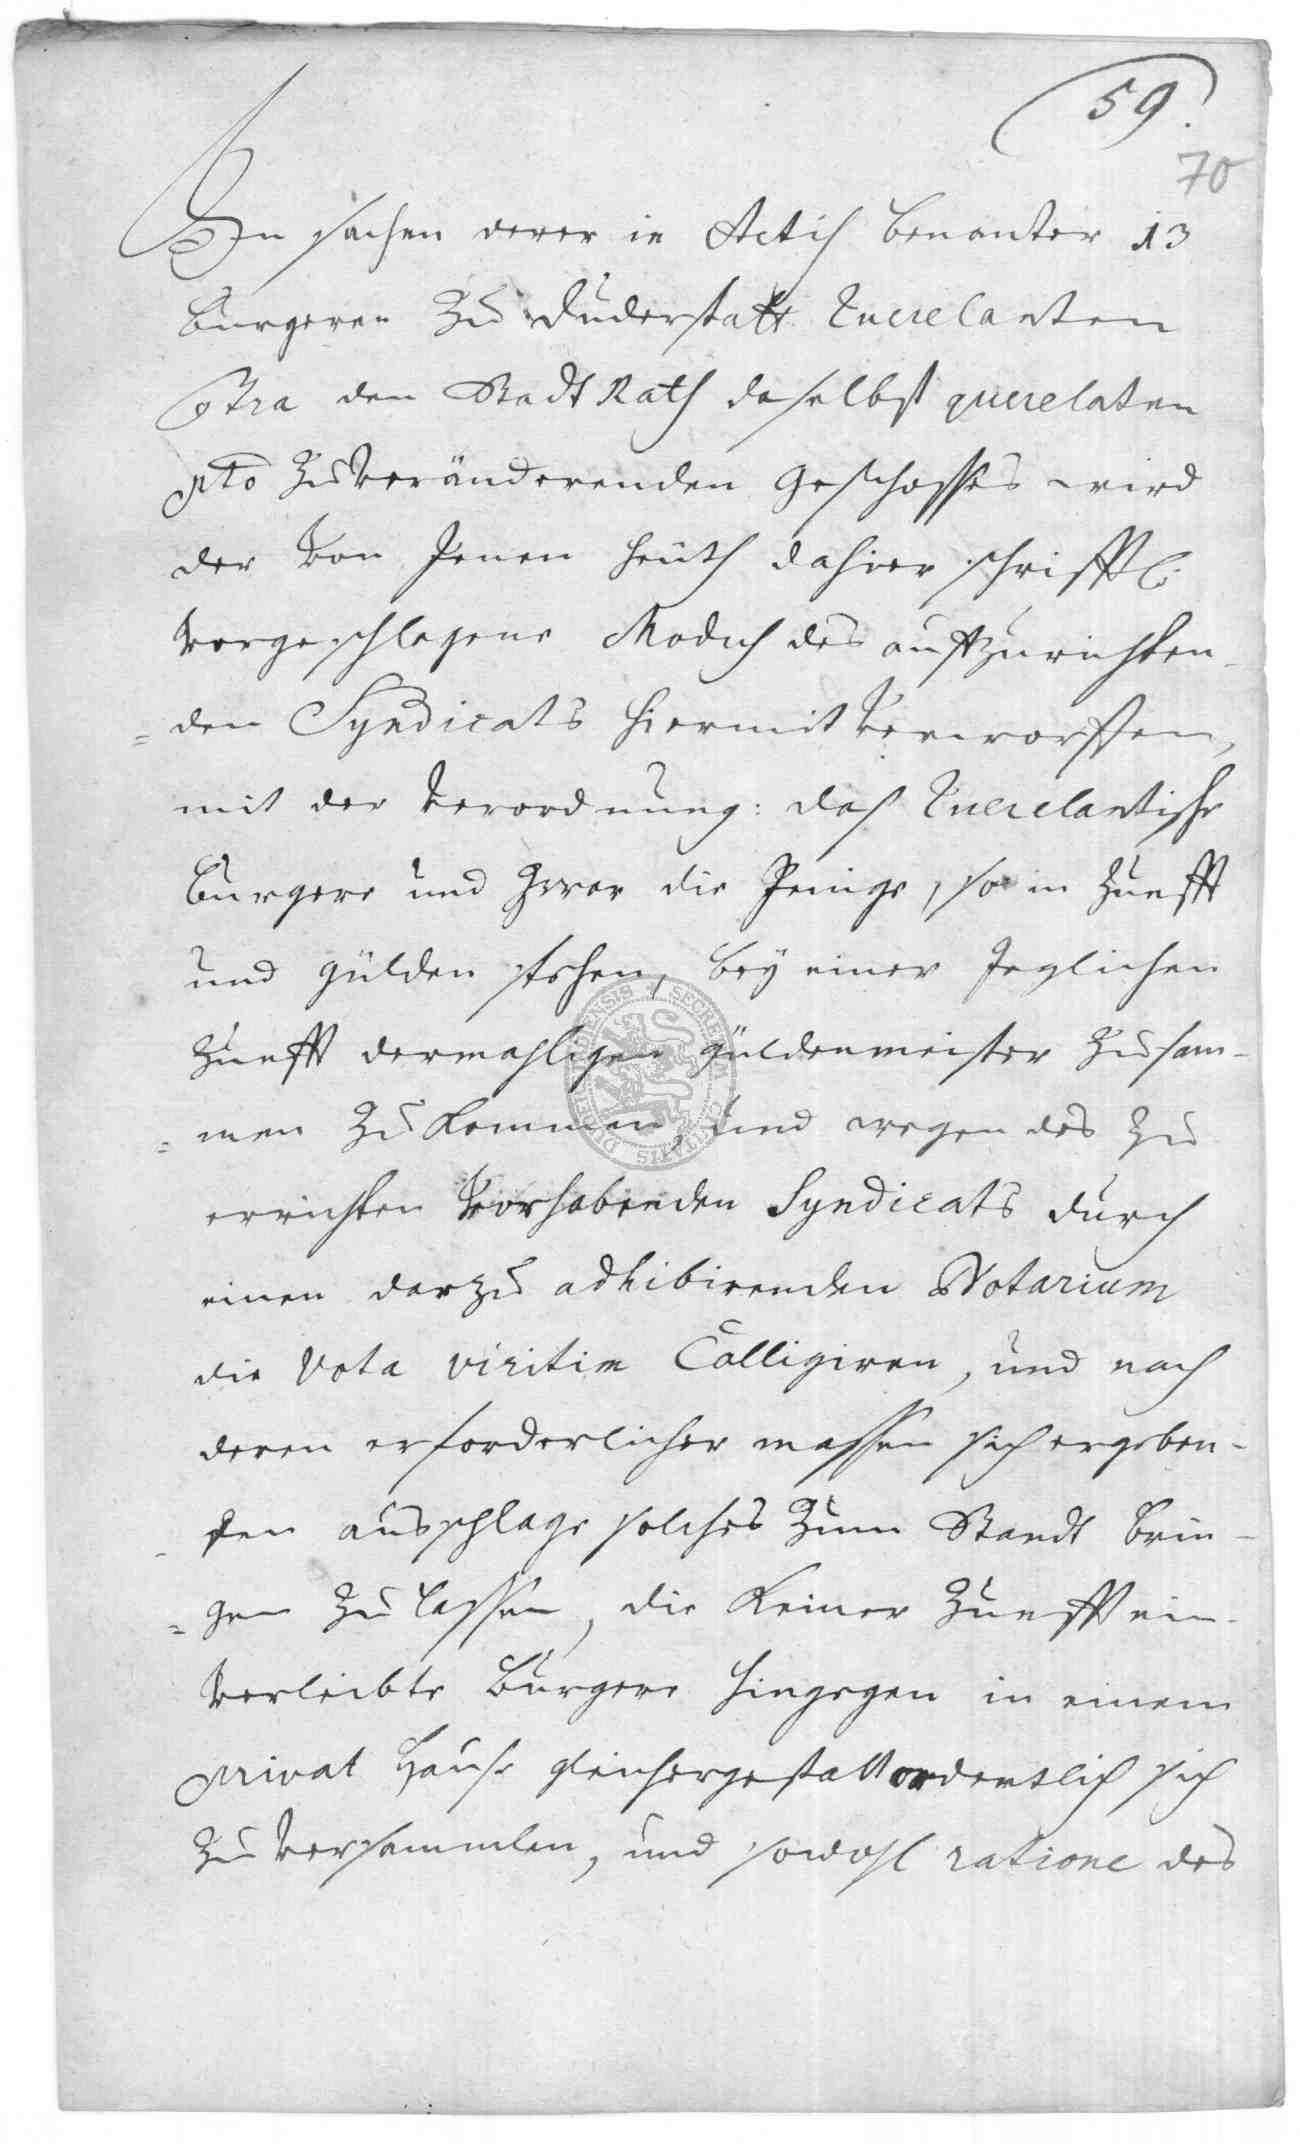 59.
70
In sachen derer in Actis benanter 13
burgeren zu Duderstatt Querelanten
Ctra den Stadt Rath daselbst querelaten
pto zu veränderenden geschosses wird
der von Jenen heuth dahier schrifftl.
vorgeschlagene Modus des auffzurichten-
=den Syndicats hiermit verworffen,
mit der verordnung: das Querelantische
burgere und zwar die Jenige, so in zunfft
und gülden stehen, bey einer Jeglichen
zunfft dermahligen güldenmeister zusam-
=men zu kommen, und wegen des zu
errichten vorhabenden Syndicats durch
einen darzu adhibirenden Notarium
die vota viritim Colligiren, und nach
deren erforderlicher massen sich ergeben-
-den ausschlage solches zum Standt brin-
=gen zu lassen, die keiner zunfft ein-
verleibte burgere hingegen in einem
privat hause gleichergestalt ordentlich sich
zu versammlen, und sowohl ratione des
SECRETV CIVITATIS DUDERSTADENSIS